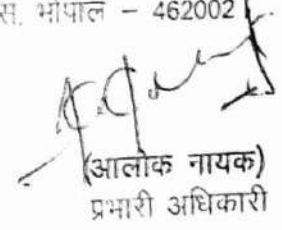 स. भोपाल – 462002
(आलोक नायक)
प्रभारी अधिकारी